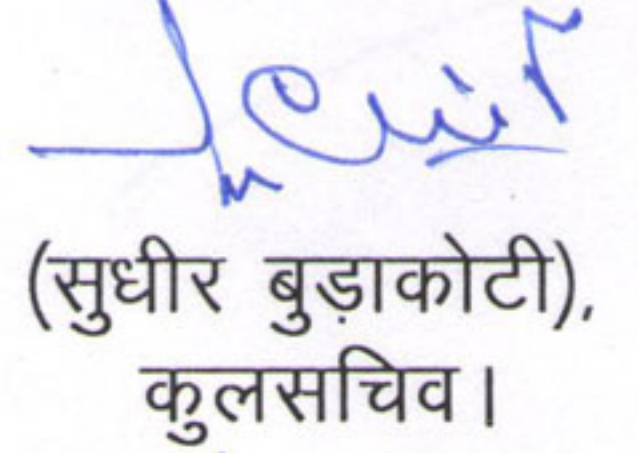 (सुधीर बुड़ाकोटी),
कुलसचिव।